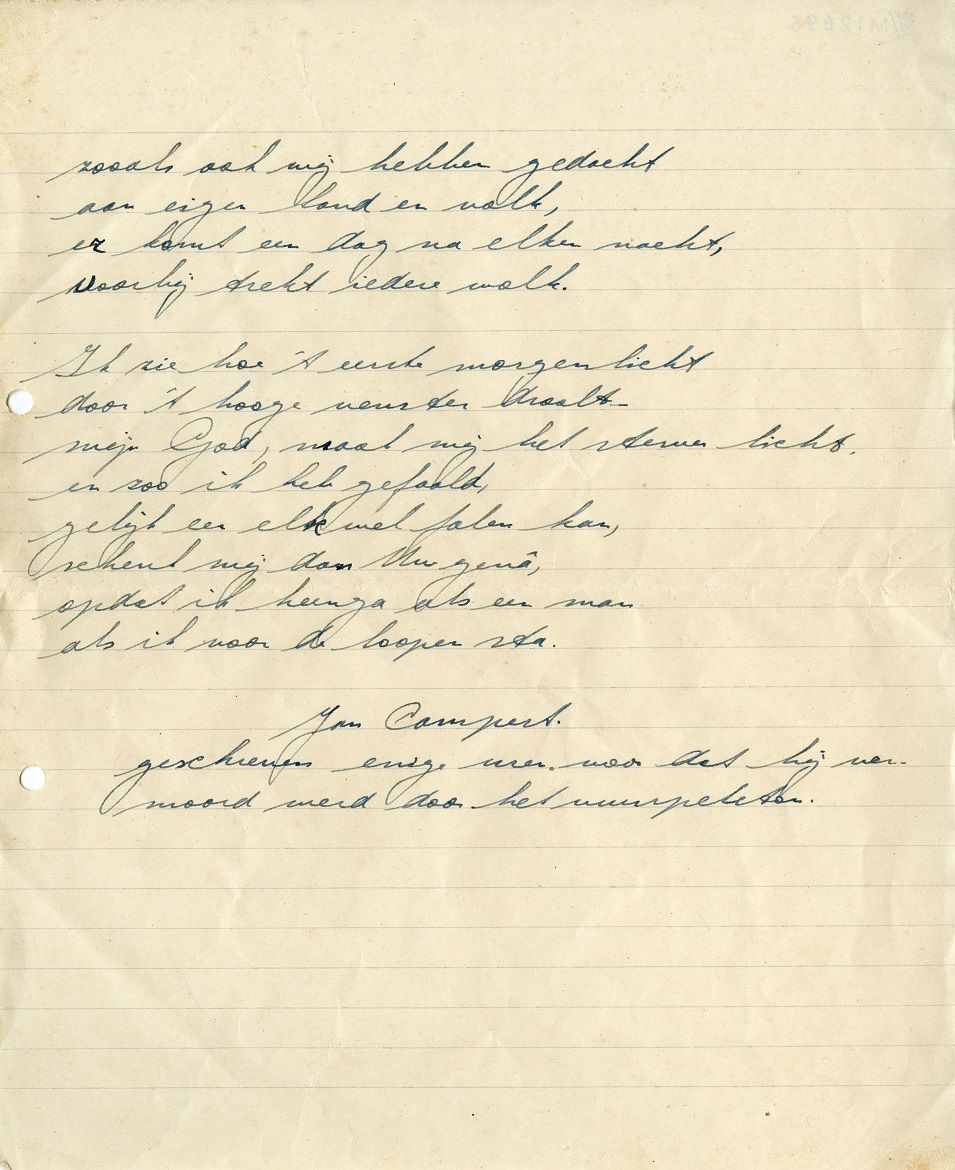 zooals ook wij hebben gedacht
aan eigen land en volk,
er komt een dag na elken nacht,
voorbij trekt iedere wolk.
Ik zie hoe 't eerste morgenlicht
door 't hooge venster draalt
mijn God, maak mij het sterven licht,
en zoo ik heb gefaald,
gelijk een elk wel falen kan,
schenk mij dan Uw genâ,
opdat ik heenga als een man
als ik voor de loopen sta.
Jan Campert.
geschreven enige uren voor dat hij ver-
moord werd door het vuurpeleton.